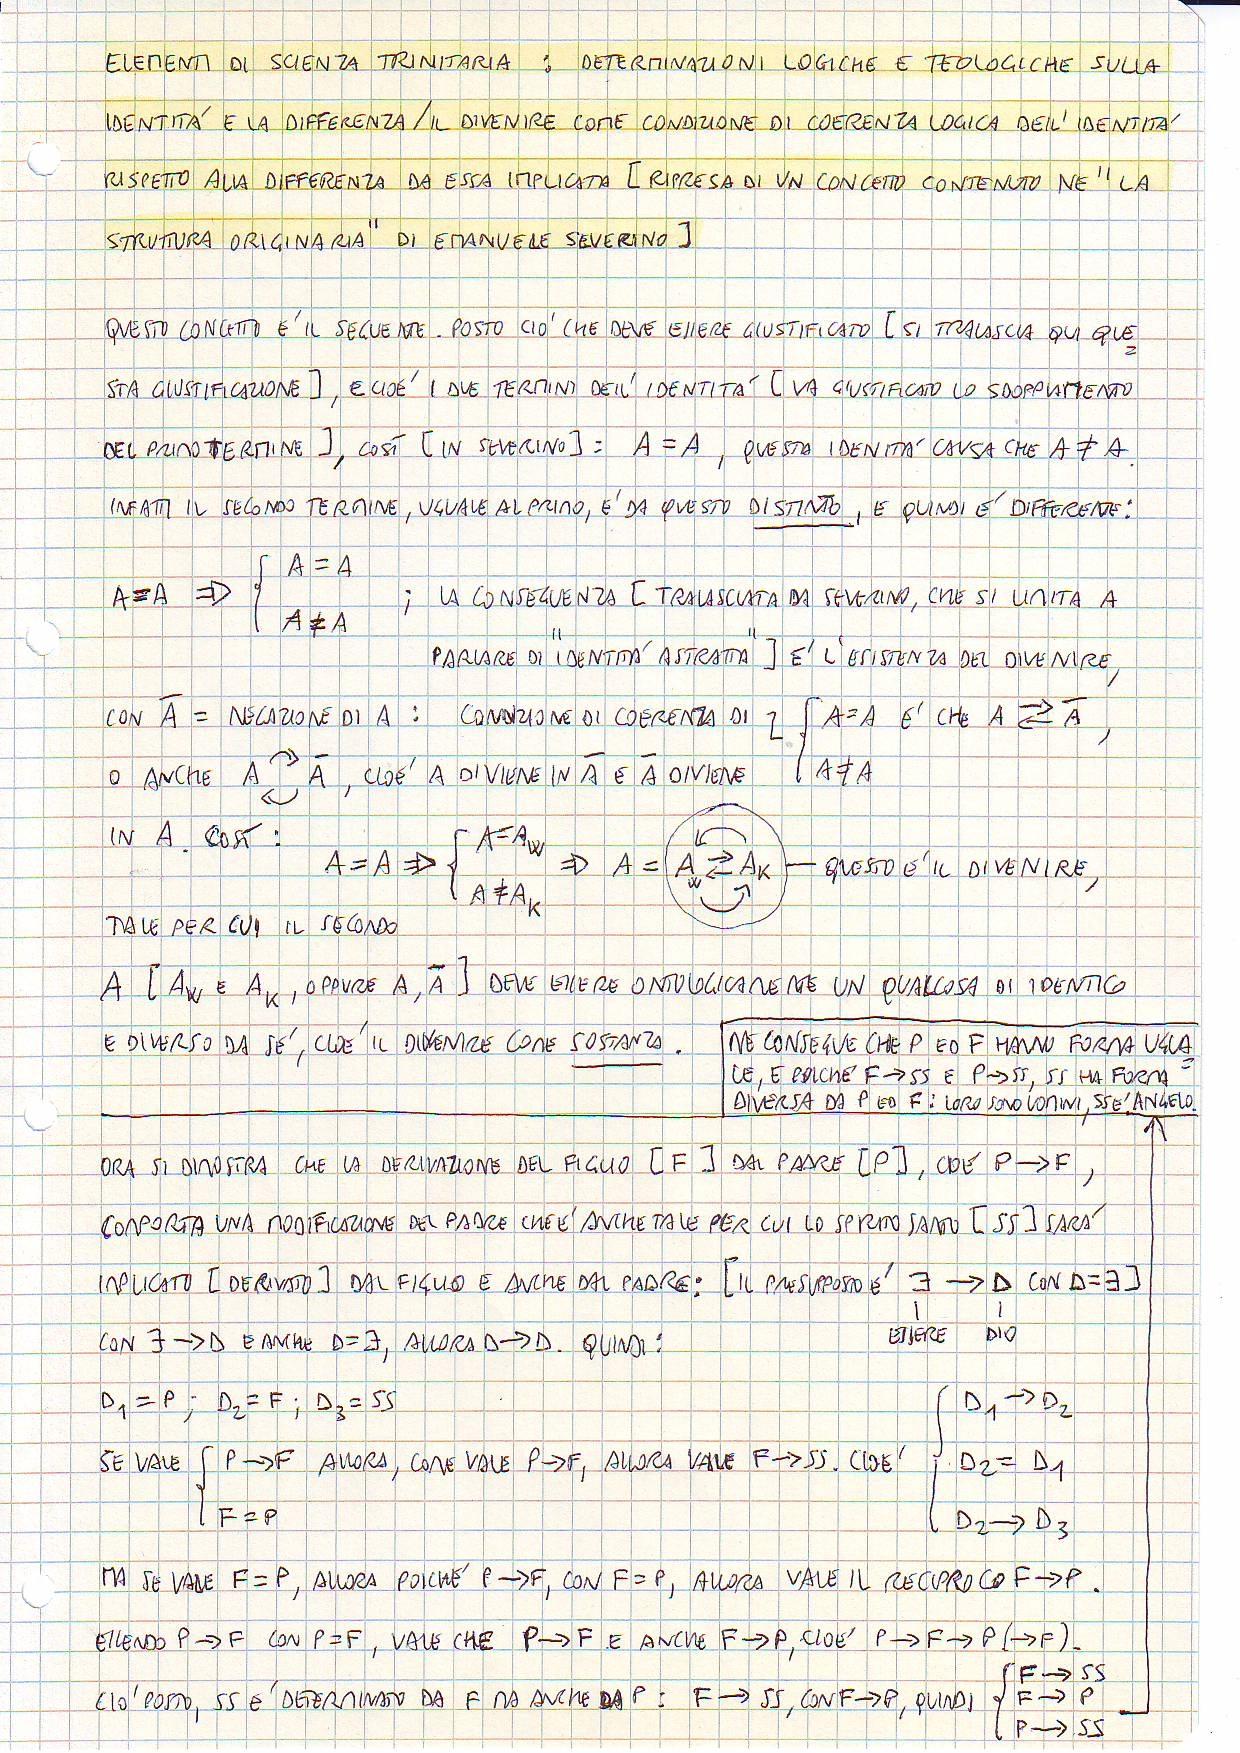 ELEMENTI DI SCIENZA TRINITARIA : DETERMINAZIONI LOGICHE E TEOLOGICHE SULLA
IDENTITA' E LA DIFFERENZA/IL DIVENIRE COME CONDIZIONE DI COERENZA LOGICA DELL'IDENTITA'
RISPETTO ALLA DIFFERENZA DA ESSA IMPLICATA [RIPRESA DI UN CONCETTO CONTENUTO NE "LA
STRUTTURA ORIGINARIA" DI EMANUELE SEVERINO]
QUESTO CONCETTO E' IL SEGUENTE. POSTO CIO' CHE DEVE ESSERE GIUSTIFICATO [SI TRALASCIA QUI QUE=
STA GIUSTIFICAZIONE], E CIOE' I DUE TERMINI DELL'IDENTITA' [VA GIUSTIFICATO LO SDOPPIAMENTO
DEL PRIMO TERMINE], COSÌ [IN SEVERINO]: A = A, QUESTA IDENTITA' CAUSA CHE A ≠ A.
INFATTI IL SECONDO TERMINE, UGUALE AL PRIMO, E' DA QUESTO DISTINTO, E QUINDI E' DIFFERENTE:
A = A ⇒ { A = A
A ≠ A ; LA CONSEGUENZA [TRALASCIATA DA SEVERINO, CHE SI LIMITA A
PARLARE DI "IDENTITA' ASTRATTA"] E' L'ESISTENZA DEL DIVENIRE,
CON Ā = NEGAZIONE DI A : CONDIZIONE DI COERENZA DI { A = A E' CHE A ⇄ Ā,
O ANCHE A ⇄ Ā, CIOE' A DIVIENE IN Ā E Ā DIVIENE A ≠ A
IN A. COSÌ :
A = A ⇒ { A = A_W
A ≠ A_K ⇒ A = A_W ⇄ A_K — QUESTO E' IL DIVENIRE,
TALE PER CUI IL SECONDO
A [A_W E A_K, OPPURE A, Ā] DEVE ESSERE ONTOLOGICAMENTE UN QUALCOSA DI IDENTICO
E DIVERSO DA SE', CIOE' IL DIVENIRE COME SOSTANZA.
NE CONSEGUE CHE P ED F HANNO FORMA UGUA=
LE, E POICHE' F → SS E P → SS, SS HA FORMA
DIVERSA DA P ED F : LORO SONO UOMINI, SS E' ANGELO.
ORA SI DIMOSTRA CHE LA DERIVAZIONE DEL FIGLIO [F] DAL PADRE [P], CIOE' P → F,
COMPORTA UNA MODIFICAZIONE DEL PADRE CHE E' ANCHE TALE PER CUI LO SPIRITO SANTO [SS] SARA'
IMPLICATO [DERIVATO] DAL FIGLIO E ANCHE DAL PADRE: [IL PRESUPPOSTO E' ∃ → D CON D = ∃]
ESSERE DIO
CON ∃ → D E ANCHE D = ∃, ALLORA D → D. QUINDI :
D1 = P ; D2 = F ; D3 = SS
SE VALE { P → F ALLORA, COME VALE P → F, ALLORA VALE F → SS. CIOE' { D1 → D2
D2 = D1
F = P
D2 → D3
MA SE VALE F = P, ALLORA POICHE' P → F, CON F = P, ALLORA VALE IL RECIPROCO F → P.
ESSENDO P → F CON P = F, VALE CHE P → F E ANCHE F → P, CIOE' P → F → P (→ F).
CIO' POSTO, SS E' DETERMINATO DA F MA ANCHE DA P : F → SS, CON F → P, QUINDI { F → SS
F → P
P → SS